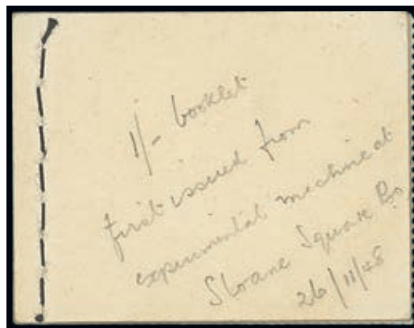 1/- booklet
first issued from
experimental machine at
Sloane Square Po
26/11/48